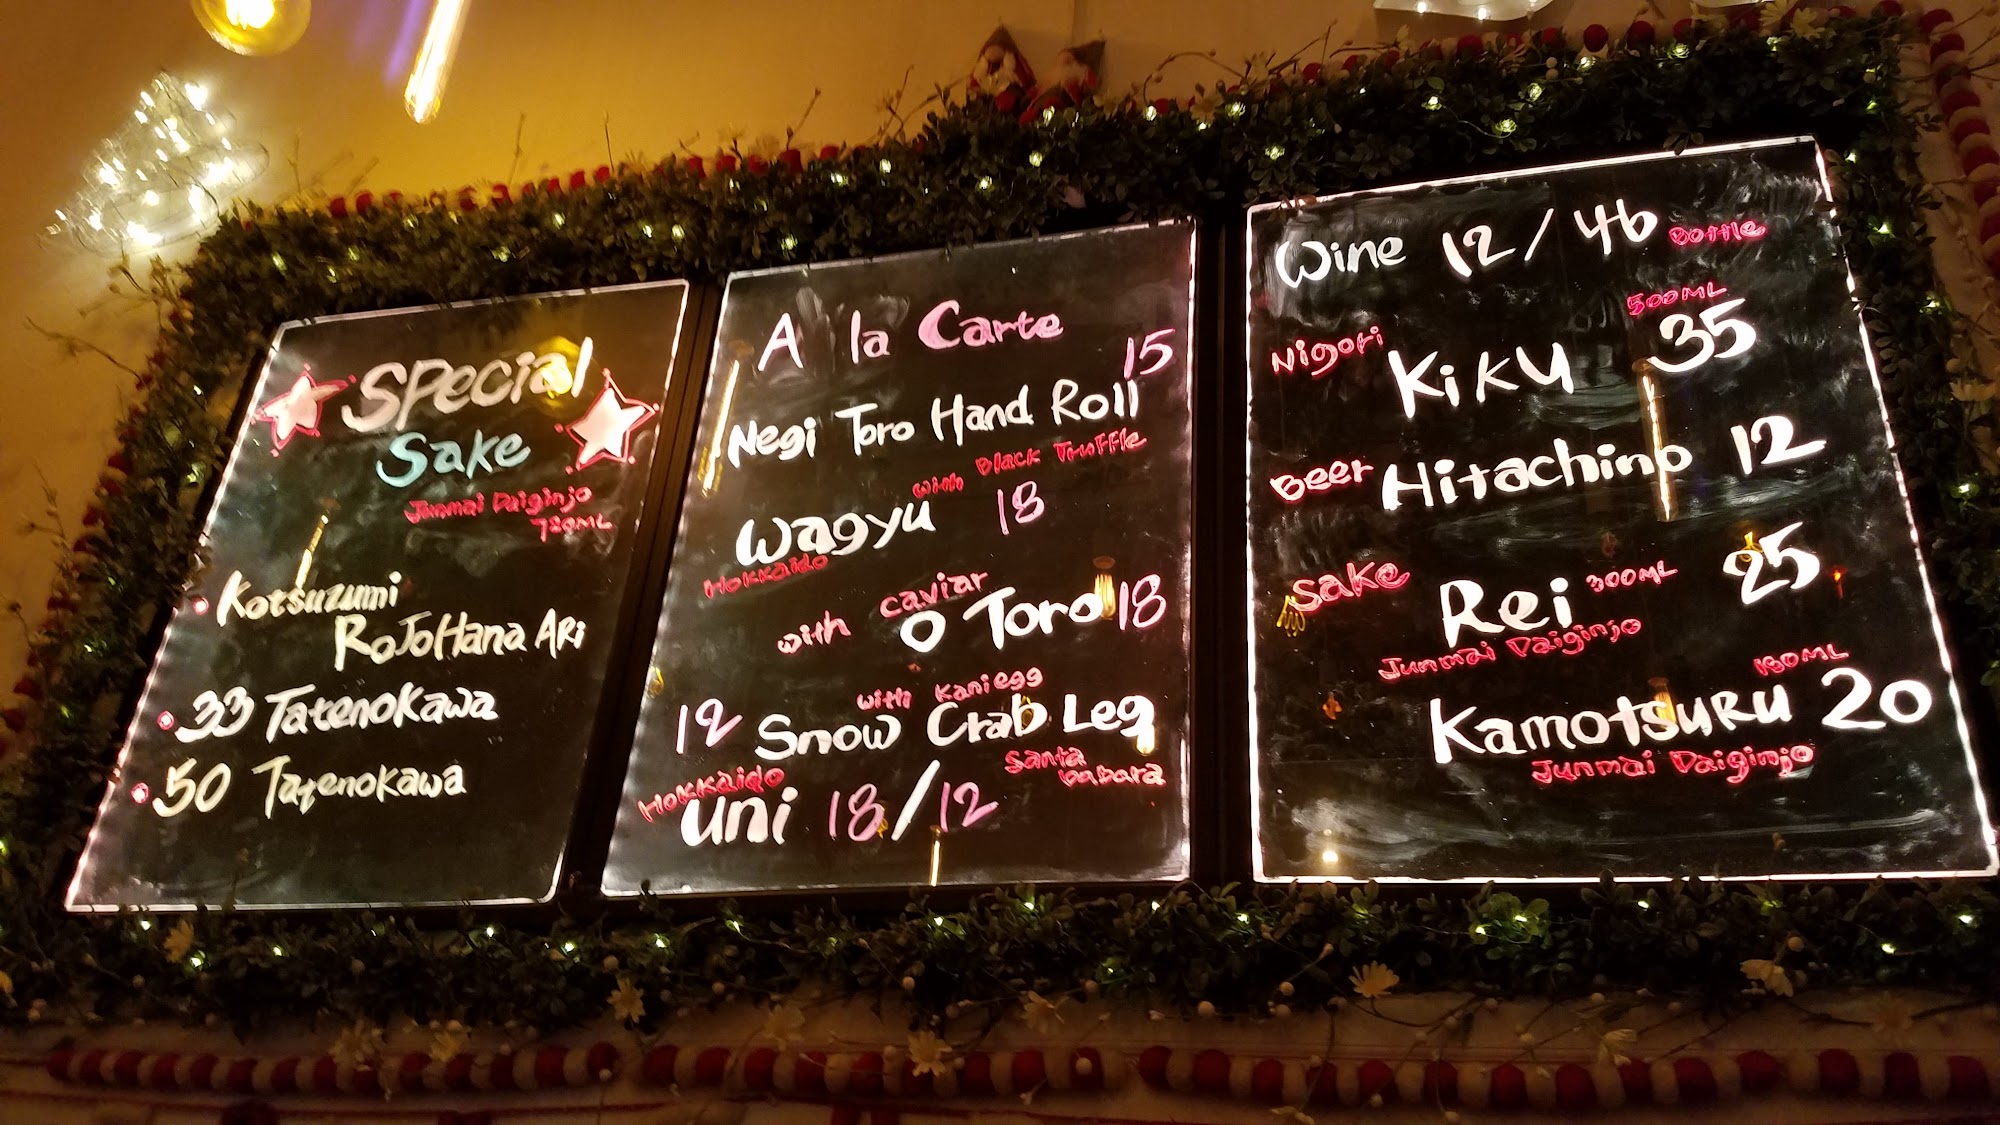 Special
Sake
Junmai Daiginjo
720ML
Kotsuzumi
RoJoHana ARi
33 Tatenokawa
50 Tatenokawa
A la Carte
15
Negi Toro Hand Roll
with Black Truffle
Wagyu 18
Hokkaido
with caviar
O Toro 18
with Kani egg
12 Snow Crab Leg
Hokkaido
Santa
babara
uni 18/12
Wine 12/46 Bottle
500ML
Nigori Kiku 35
Beer Hitachino 12
Sake Rei 300ML 25
Junmai Daiginjo
180ML
Kamotsuru 20
Junmai Daiginjo